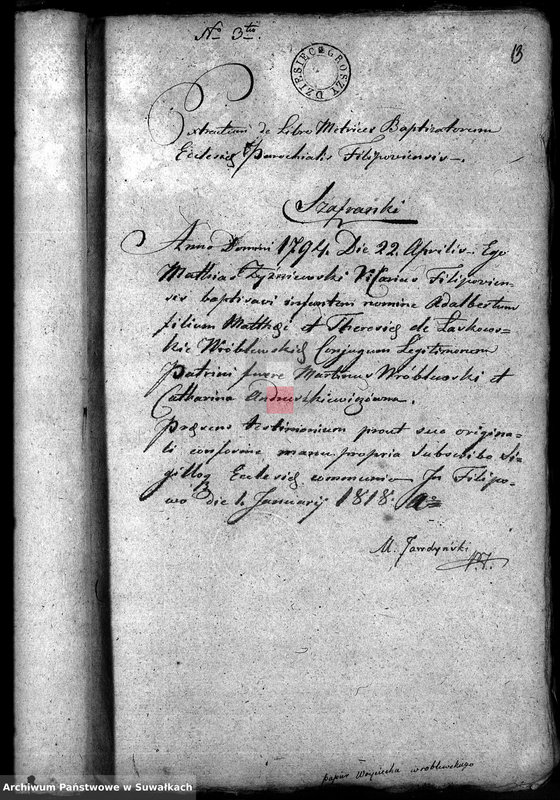 No 3tio
13
DZIESIĘC GROSZY
Extractum de Libro Metrices Baptizatorum
Ecclesię Parochialis Filipoviensis.
Szafranki
Anno Domini 1794. Die 22. Aprilis. Ego
Mathias Vicarius Filipovien-
sis baptisavi infantem nomine Adalbertum
filium Matthęi et Theresię de Laskows-
kie Wróblewskich Conjugum Legitimorum
Patrini fuere Martinus Wróblewski et
Catharina Andruszkiewiczówna.
Pręsens testimonium prout suo origina-
li conforme manu propria subscribo Si-
gilloq Ecclesię communio In Filipo-
wo die 1. Januarij 1818.
M.
papier Woyciecha wroblewskiego
Archiwum Państwowe w Suwałkach